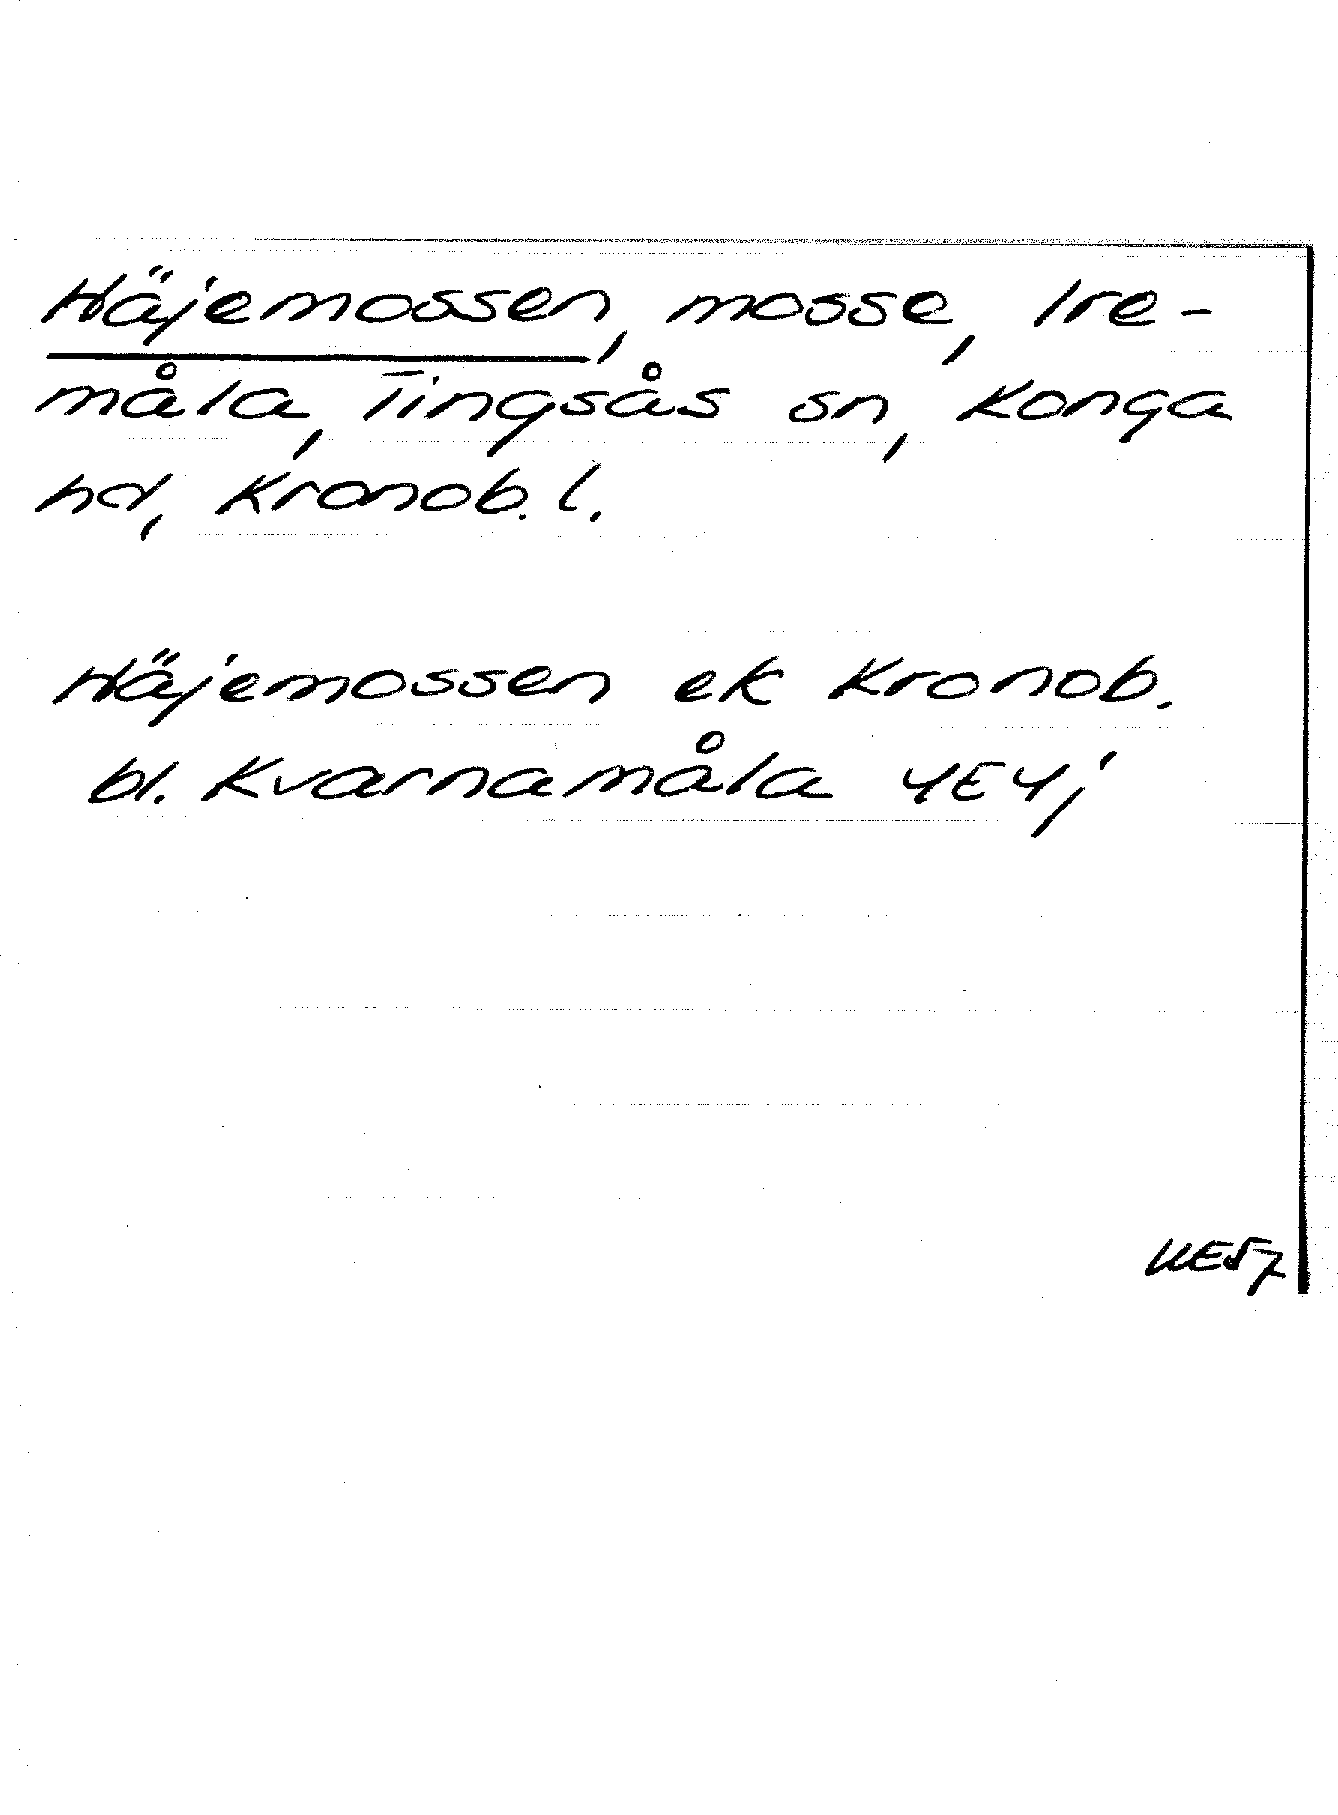 Häjemossen, mosse, Ire-
måla, Tingsås sn, Konga
hd, Kronob. l.
Häjemossen ek Kronob.
bl. Kvarnamåla 4E4j